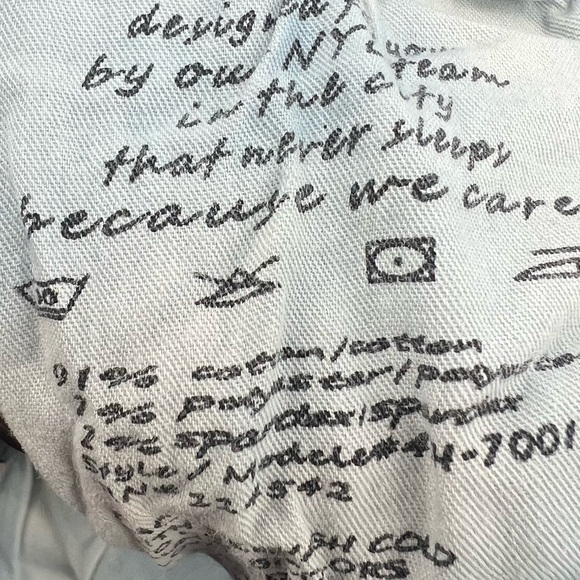 by our NY team
in the city
that never sleeps
because we care
30
91% cotton/cotton
7% polyester/polyester
2% spandex/spandex
Style/Modele# 44-7001
22/542
COLD